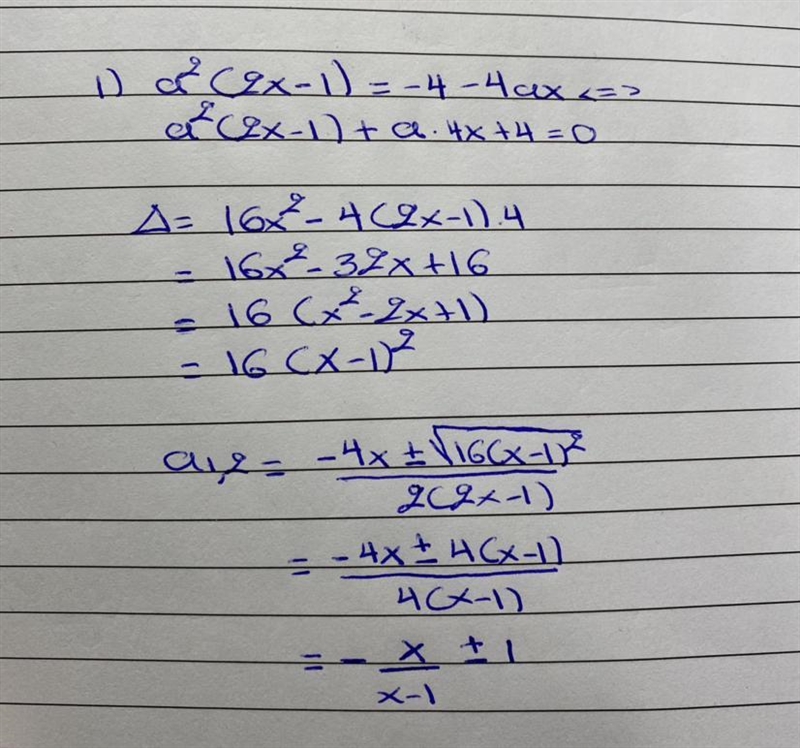 1) a²(2x-1) = -4 - 4ax <=>
a²(2x-1) + a·4x + 4 = 0
Δ = 16x² - 4(2x-1)·4
= 16x² - 32x + 16
= 16 (x² - 2x + 1)
= 16 (x-1)²
a₁,₂ = (-4x ± √(16(x-1)²)) / (2(2x-1))
= (-4x ± 4(x-1)) / (4(x-1))
= - x/(x-1) ± 1